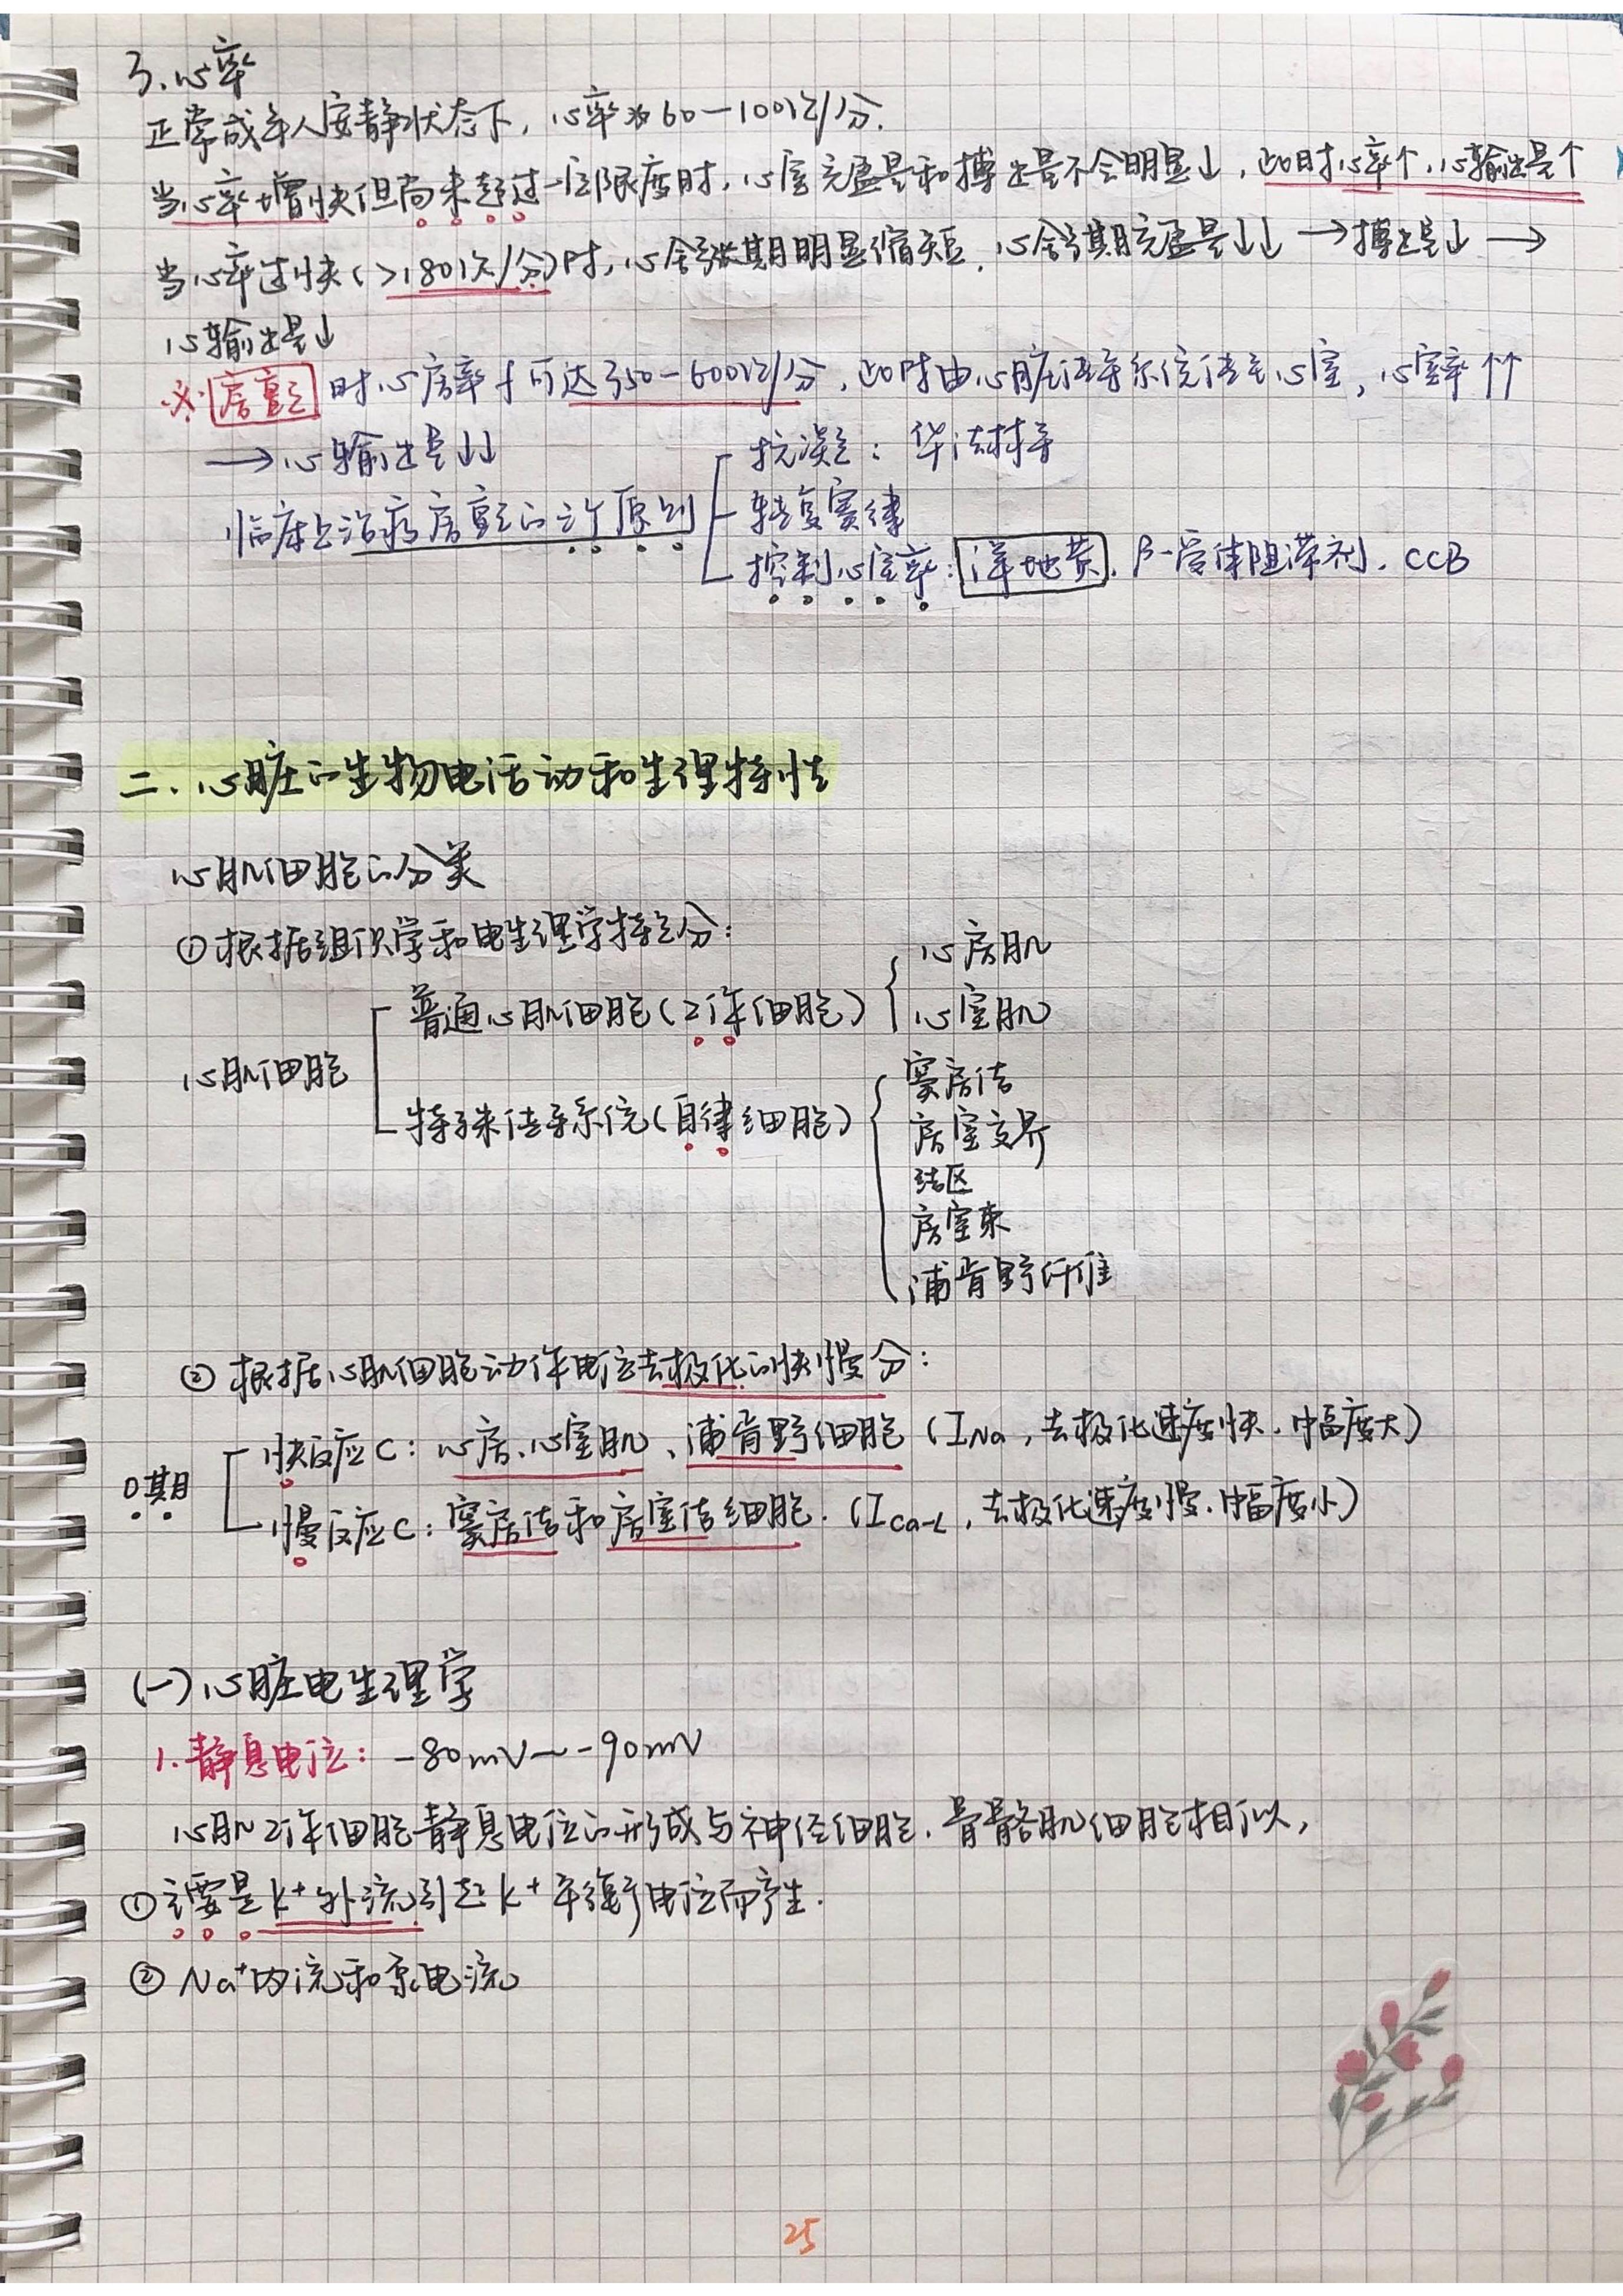 3.心率
正常成年人安静状态下，心率为60—100次/分.
当心率增快但尚未超过一定限度时，心室充盈量和搏出量不会明显↓，此时心率↑，心输出量↑
当心率过快(>180次/分)时，心舒张期明显缩短，心舒期充盈量↓↓→搏出量↓→
心输出量↓
※房颤时心房率f可达350—600次/分，此时由心脏传导系统传至心室，心室率↑↑
→心输出量↓↓
抗凝：华法林
临床上治疗房颤的三个原则
转复窦律
控制心室率：洋地黄.β-受体阻滞剂.CCB
二.心脏的生物电活动和生理特性
心肌细胞的分类
①根据组织学和电生理学特点分：
心房肌
普通心肌细胞(工作细胞)
心室肌
心肌细胞
窦房结
特殊传导系统(自律细胞)
房室交界
结区
房室束
浦肯野纤维
②根据心肌细胞动作电位去极化的快慢分：
快反应C：心房、心室肌、浦肯野细胞(INa，去极化速度快.幅度大)
0期
慢反应C：窦房结和房室结细胞.(ICa-L，去极化速度慢.幅度小)
(一)心脏电生理学
1.静息电位：-80mV~-90mV
心肌工作细胞静息电位的形成与神经细胞.骨骼肌细胞相似，
①主要是K+外流引起K+平衡电位而产生.
②Na+内流和泵电流
25